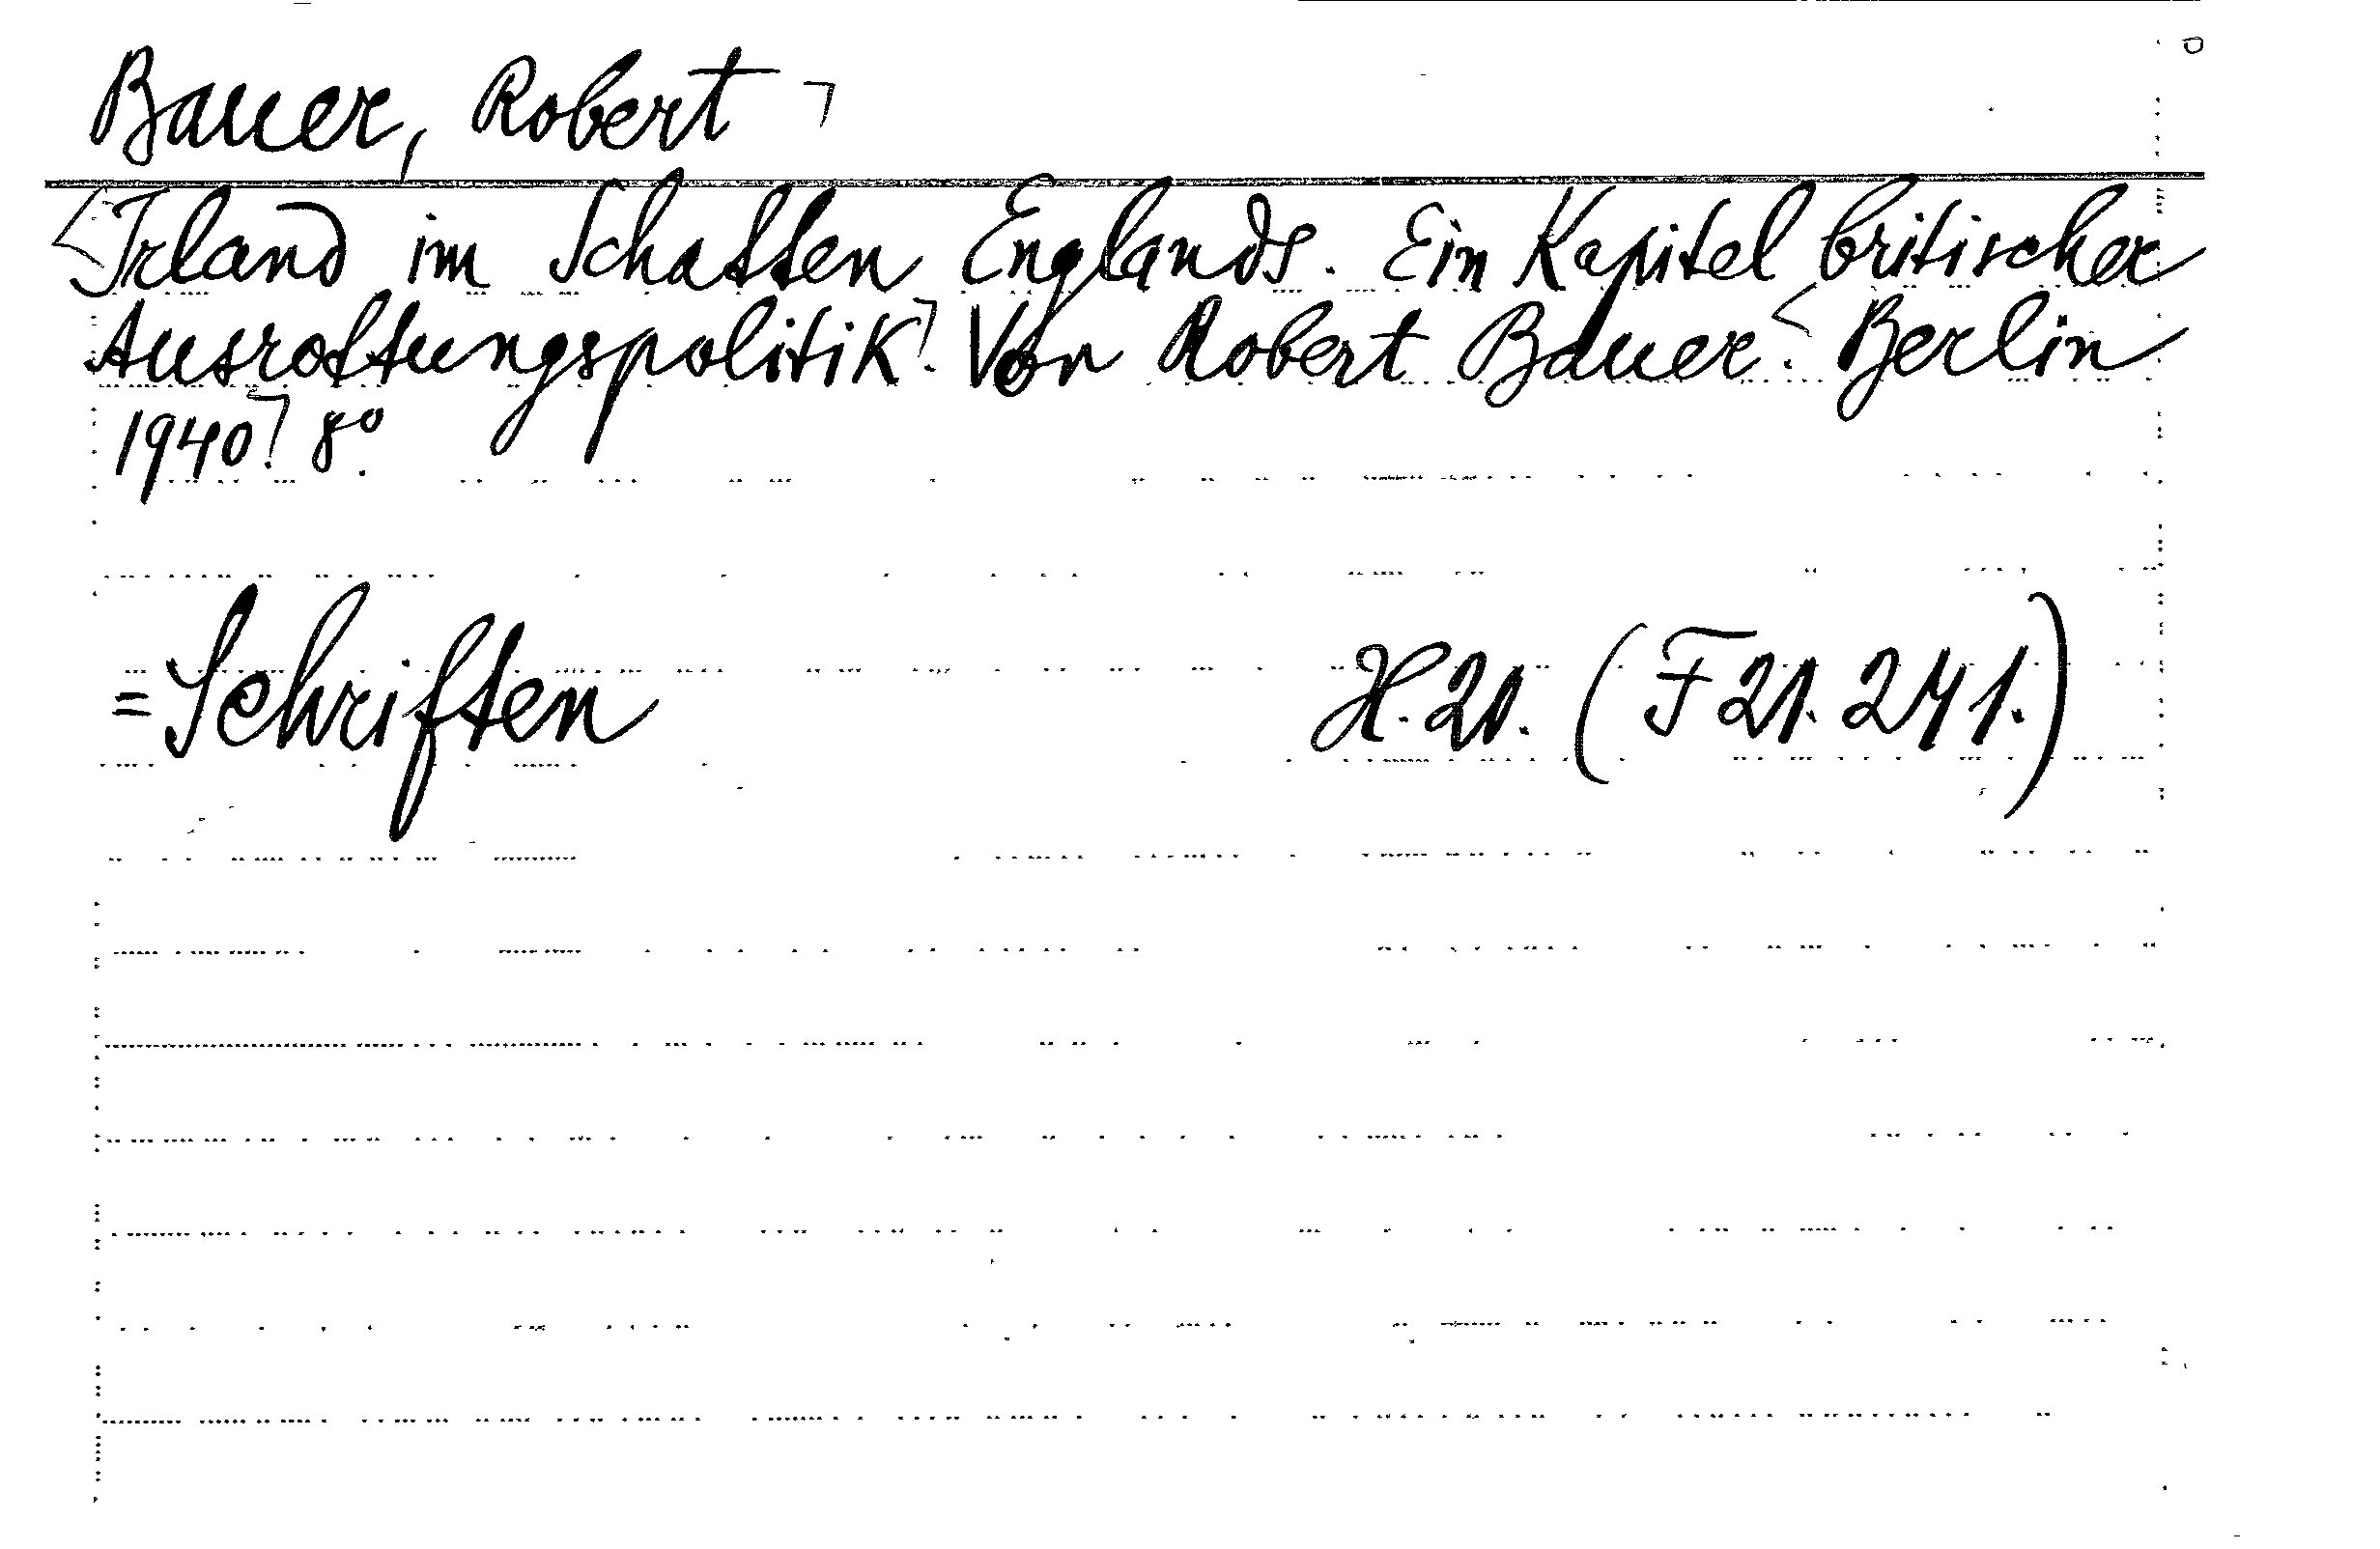 Bauer, Robert
Irland im Schatten Englands. Ein Kapitel britischer
Ausrottungspolitik. Von Robert Bauer. Berlin
1940. 8°.
=Schriften H. 20. (F 21. 241.)